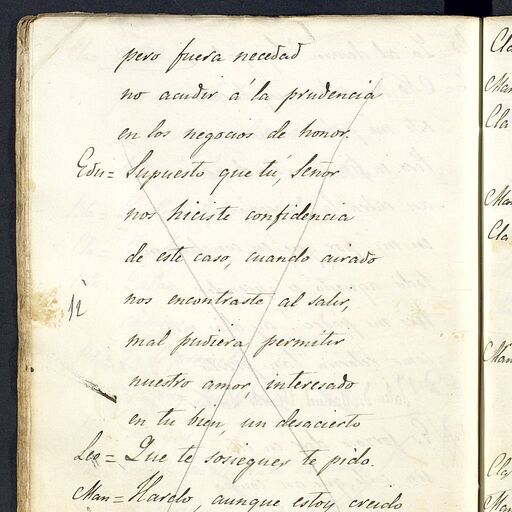 pero fuera necedad
no acudir á la prudencia
en los negocios de honor.
Edu = Supuesto que tú, Señor
nos hiciste confidencia
de este caso, cuando airado
nos encontraste al salir,
mal pudiera permitir
nuestro amor, interesado
en tu bien, un desacierto
Leo = Que te sosiegues te pido.
Man = Harelo, aunque estoy creido
Cla
Man
Cla
Man
Cla
Man
Cla
Man